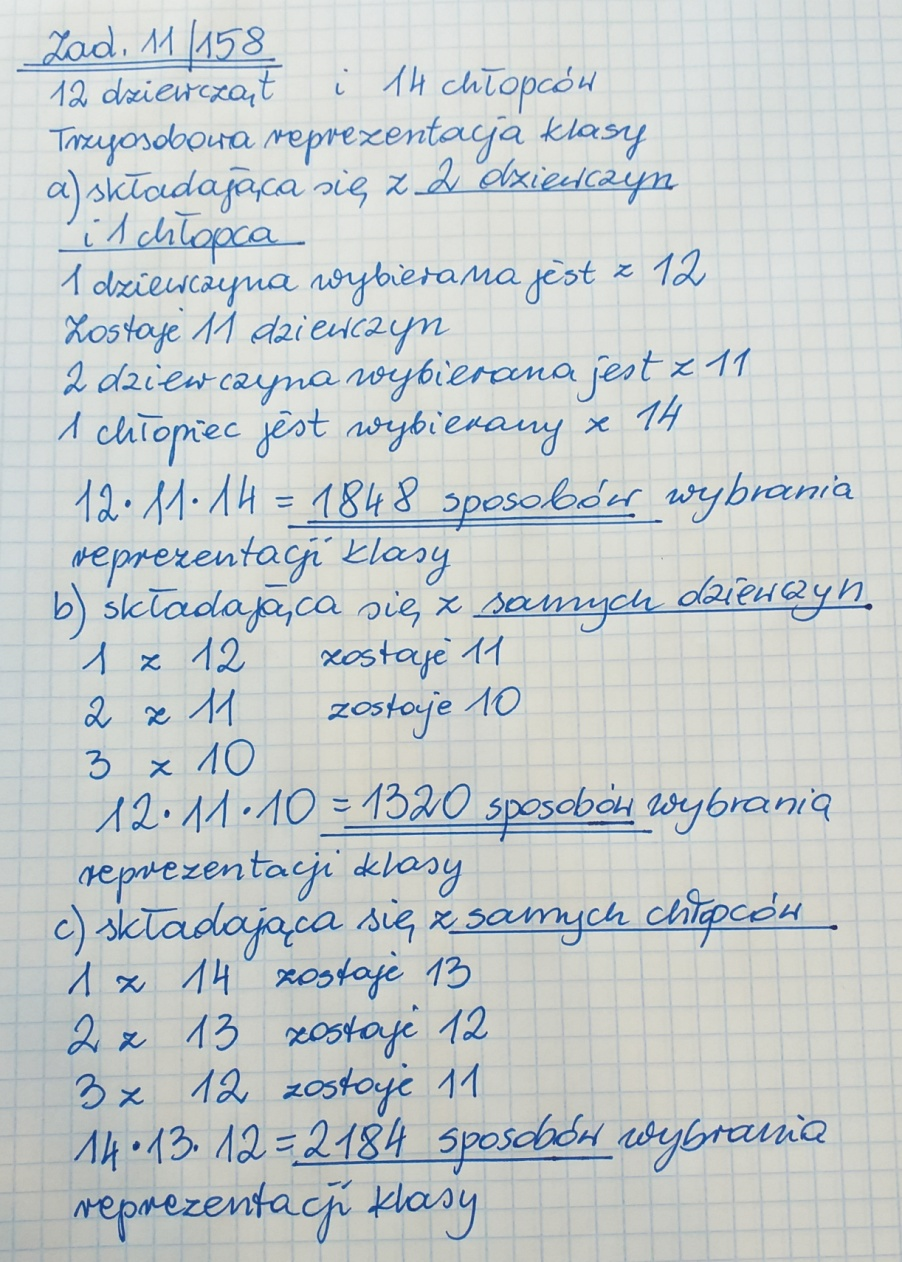 Zad. 11/158
12 dziewcząt i 14 chłopców
Trzyosobowa reprezentacja klasy
a) składająca się z 2 dziewczyn
i 1 chłopca
1 dziewczyna wybierana jest z 12
Zostaje 11 dziewczyn
2 dziewczyna wybierana jest z 11
1 chłopiec jest wybierany z 14
12·11·14 = 1848 sposobów wybrania
reprezentacji klasy
b) składająca się z samych dziewczyn.
1 z 12 zostaje 11
2 z 11 zostaje 10
3 z 10
12·11·10 = 1320 sposobów wybrania
reprezentacji klasy
c) składająca się z samych chłopców.
1 z 14 zostaje 13
2 z 13 zostaje 12
3 z 12 zostaje 11
14·13·12 = 2184 sposobów wybrania
reprezentacji klasy